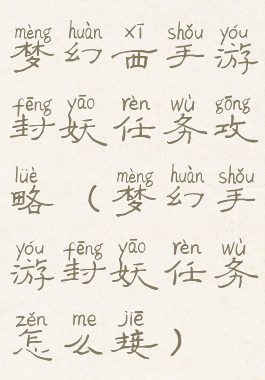 mèng huàn xī shǒu yóu
梦幻西手游
fēng yāo rèn wù gōng
封妖任务攻
lüè mèng huàn shǒu
略（梦幻手
yóu fēng yāo rèn wù
游封妖任务
zěn me jiē
怎么接）